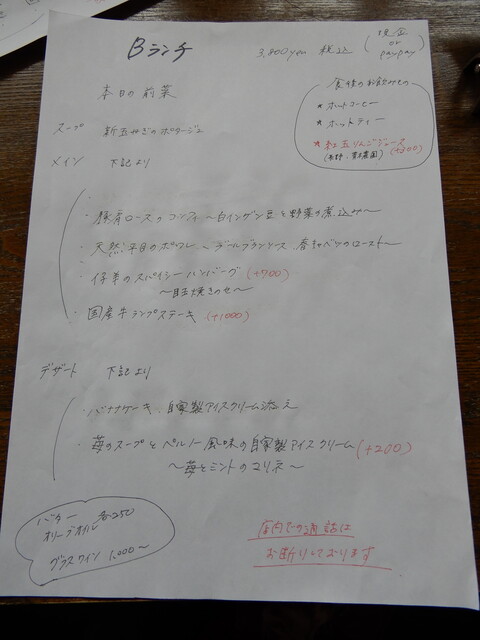 Bランチ 3,800yen 税込 (現金 or paypay)
本日の前菜
スープ 新玉ねぎのポタージュ
メイン 下記より
・豚肩ロースのコンフィ 〜白インゲン豆と野菜の煮込み〜
・天然平目のポワレ 〜ブールブランソース 春キャベツのロースト〜
・仔羊のスパイシーハンバーグ (+700)
〜目玉焼きのせ〜
・国産牛ランプステーキ (+1000)
デザート 下記より
・バナナケーキ、自家製アイスクリーム添え
・苺のスープとペルノー風味の自家製アイスクリーム (+200)
〜苺とミントのマリネ〜
食後のお飲みもの
★ホットコーヒー
★ホットティー
★紅玉りんごジュース (+300)
バター 各250
オリーブオイル
グラスワイン 1,000〜
店内での通話は
お断りしております